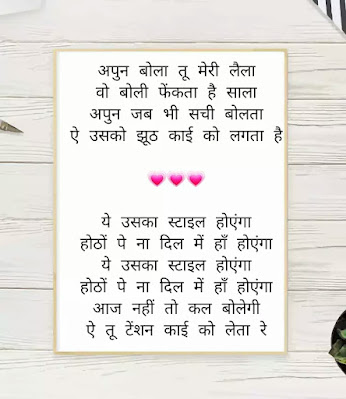 अपुन बोला तू मेरी लैला
वो बोली फेंकता है साला
अपुन जब भी सची बोलता
ऐ उसको झूठ काई को लगता है
ये उसका स्टाइल होएंगा
होठों पे ना दिल में हाँ होएंगा
ये उसका स्टाइल होएंगा
होठों पे ना दिल में हाँ होएंगा
आज नहीं तो कल बोलेगी
ऐ तू टेंशन काई को लेता रे